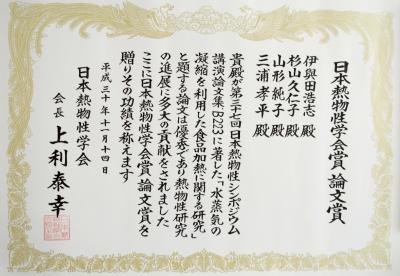 日本熱物性学会賞 論文賞
伊與田浩志 殿
杉山久仁子 殿
山形純子 殿
三浦孝平 殿
貴殿が第三十七回日本熱物性シンポジウム
講演論文集B223に著した「水蒸気の
凝縮を利用した食品加熱に関する研究」
と題する論文は優秀であり熱物性研究
の進展に多大の貢献をされました
ここに日本熱物性学会賞論文賞を
贈りその功績を称えます
平成三十年十一月十四日
日本熱物性学会
会長 上利泰幸